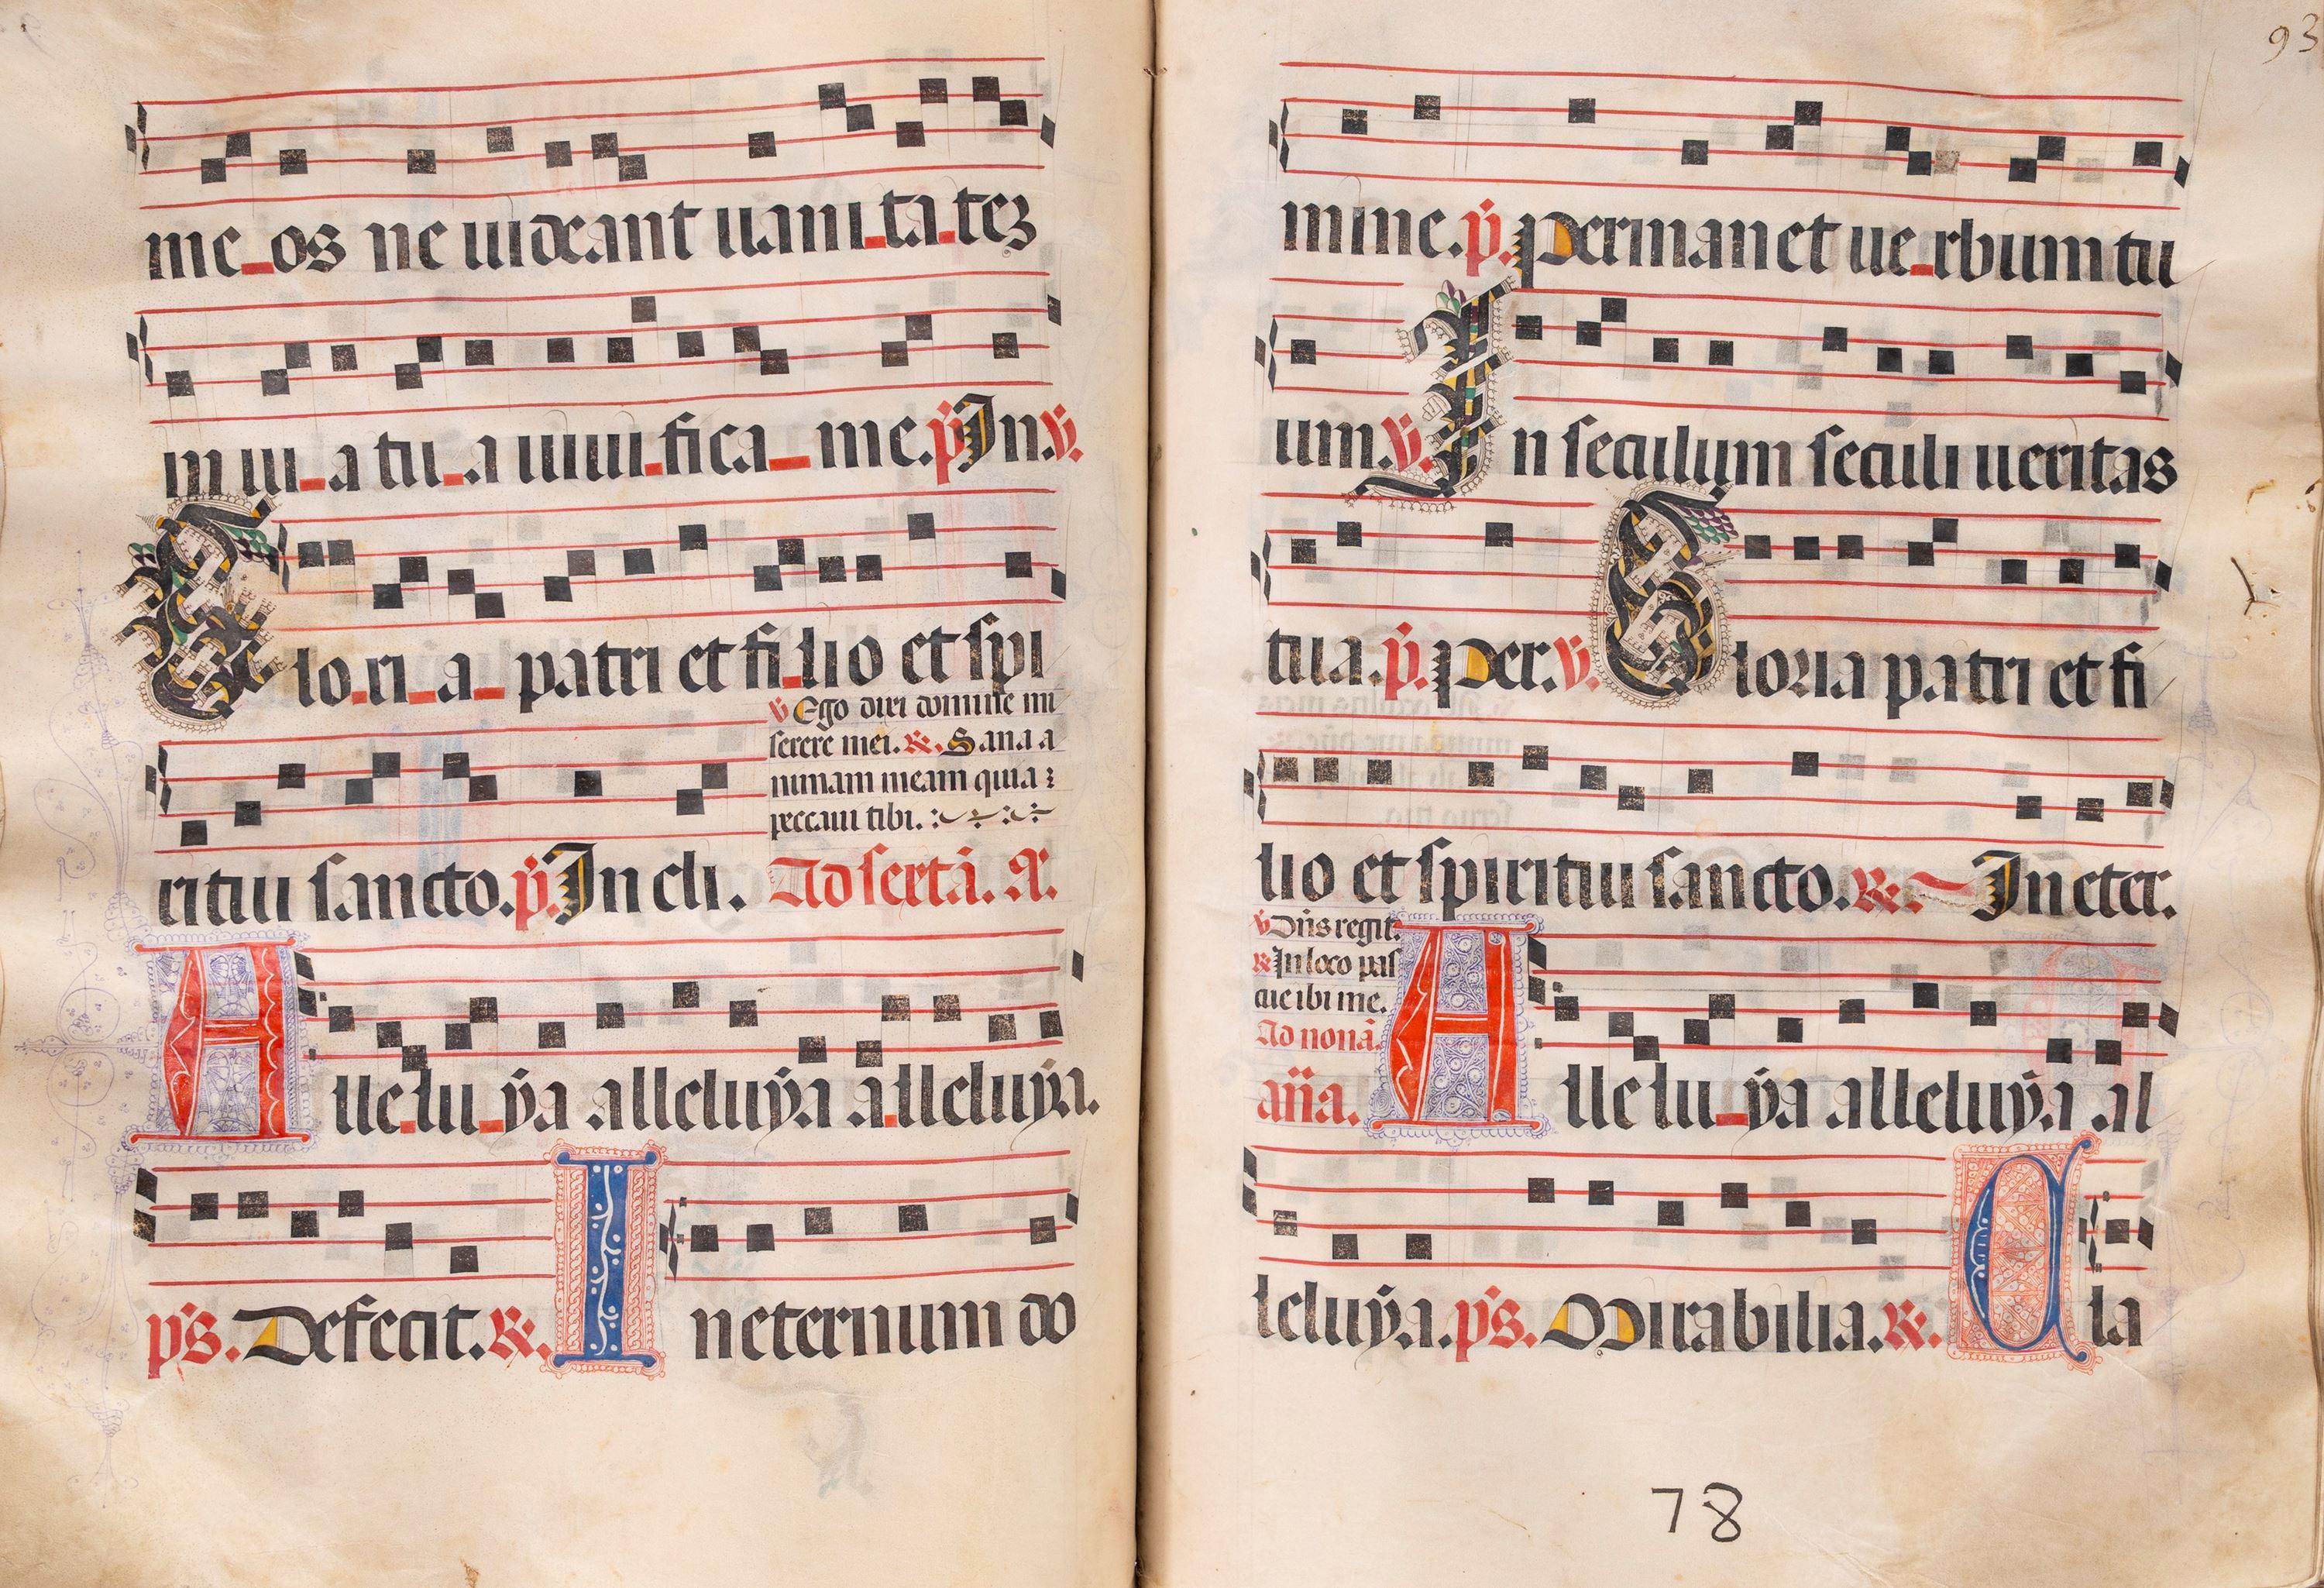 me os ne uideant uanitatez
in uia tua uiuifica me. p̄ In. v̄.
Gloria patri et filio et spi
v̄ Ego dixi domine mi
serere mei. R̄. Sana a
nimam meam quia ⁊
peccaui tibi.
ritui sancto. p̄. In cli. Ad sextā. A.
Alleluya alleluya alleluya.
p̄s. Defecit. R̄. In eternum do
93
mine. p̄. permanet uerbum tu
um. v̄. In seculum seculi ueritas
tua. p̄. per. v̄. Gloria patri et fi
lio et spiritui sancto. R̄. In eter.
v̄ Dn̄s regit.
R̄ In loco pas
cue ibi me.
Ad nonā.
an̄a. Alleluya alleluya al
leluya. p̄s. Mirabilia. R̄. Cla
78